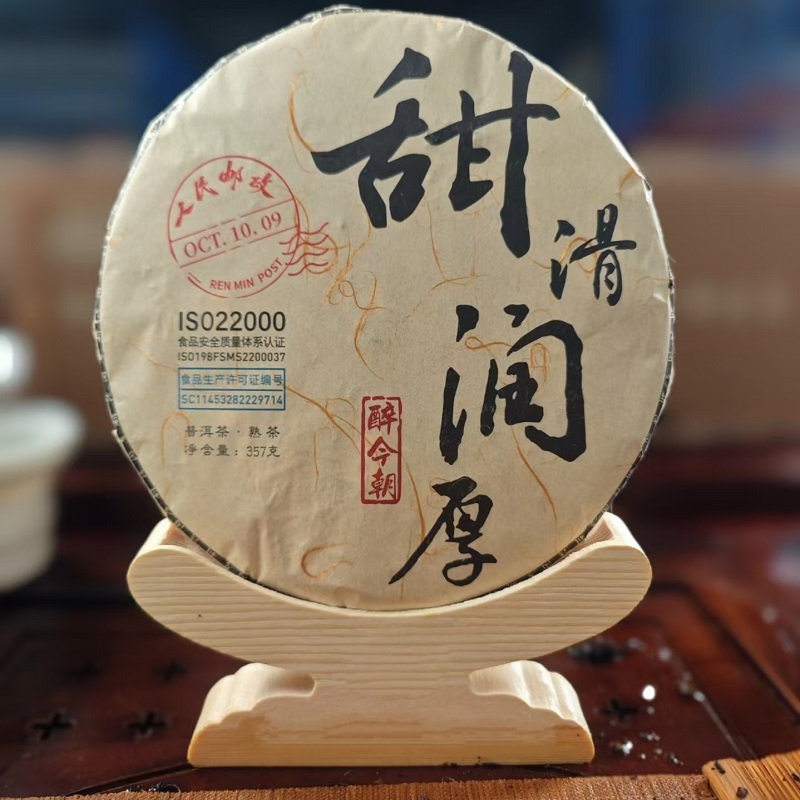 甜
滑
润
厚
人民邮政
OCT. 10. 09
REN MIN POST
ISO22000
食品安全质量体系认证
ISO198FSMS2200037
食品生产许可证编号
SC11453282229714
普洱茶·熟茶
净含量：357克
醉今朝